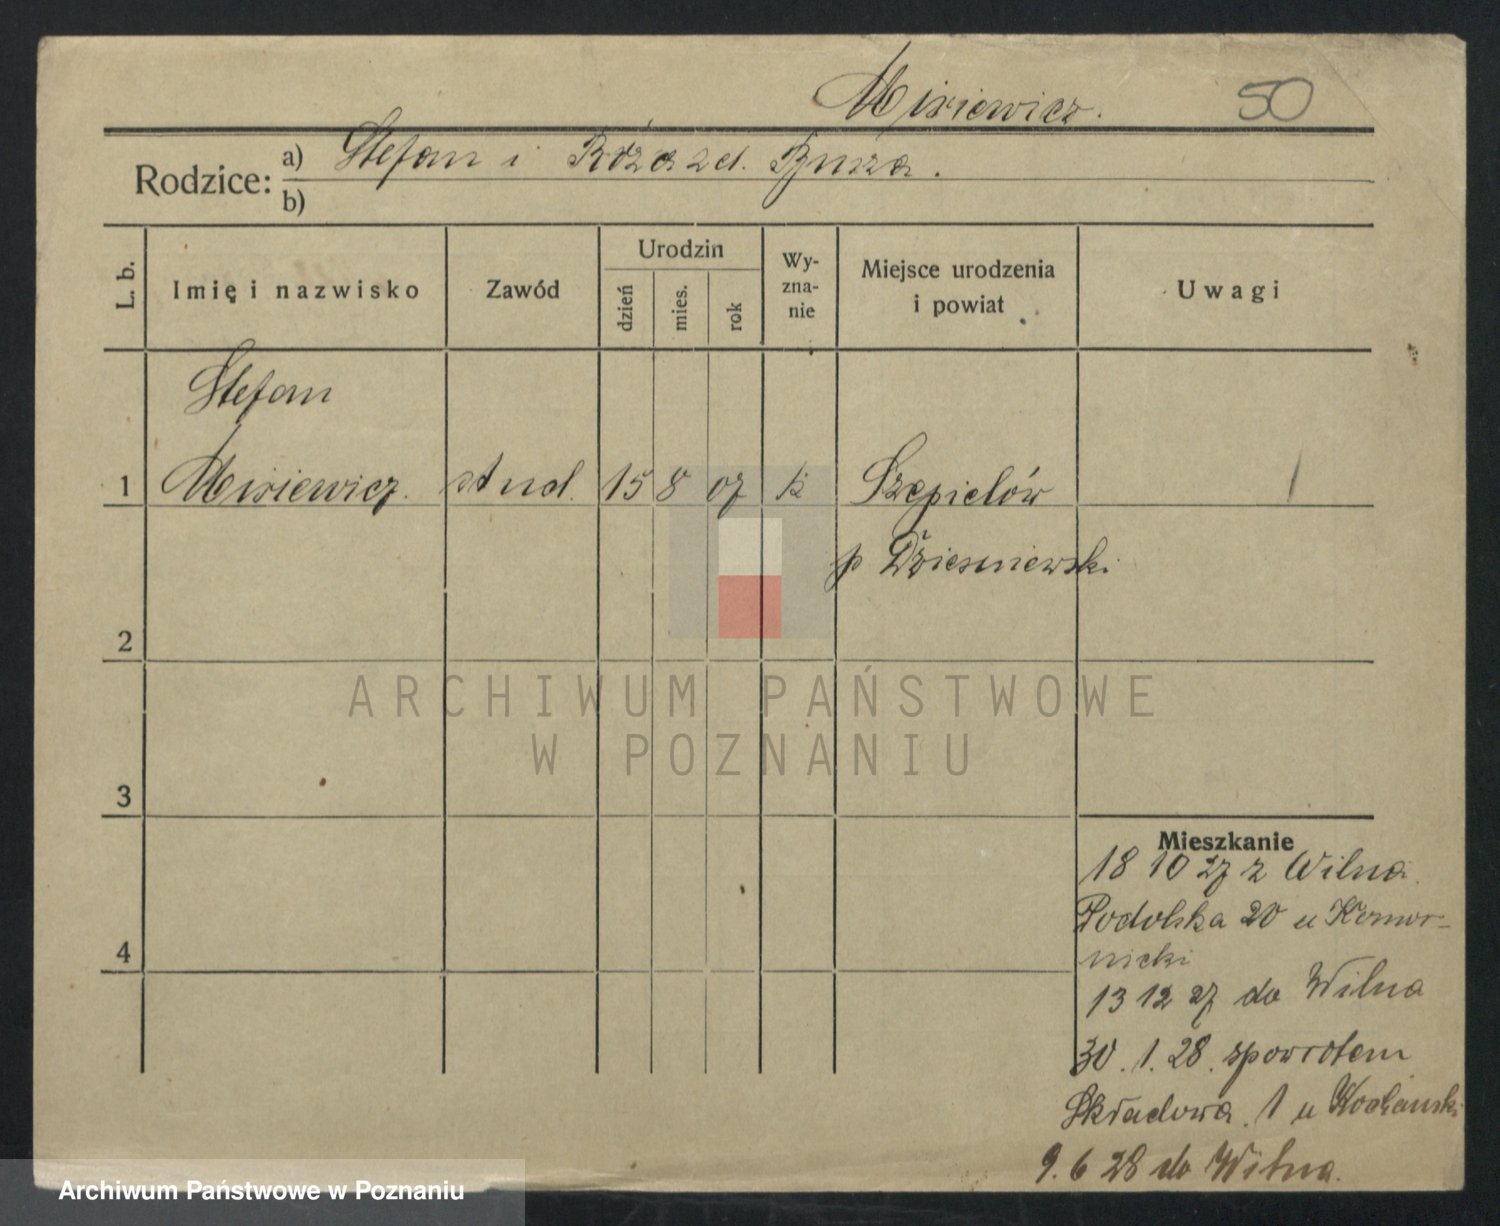 Misiewicz. 50
Rodzice: a) Stefan i Róża zd.
b)
L. b. Imię i nazwisko Zawód Urodzin dzień mies. rok Wy-zna-nie Miejsce urodzenia i powiat Uwagi
Stefan
1 Misiewicz. stud. 15 8 07 k Szepielów
p Dziesniewski
2
ARCHIWUM PAŃSTWOWE
W POZNANIU
3
Mieszkanie
18 10 27 z Wilna.
Podolska 20 u Komor-
4 nicki
13 12 27 do Wilna
30. 1. 28. spowrotem
Składowa. 1 u Kochanski
9. 6 28 do Wilna.
Archiwum Państwowe w Poznaniu